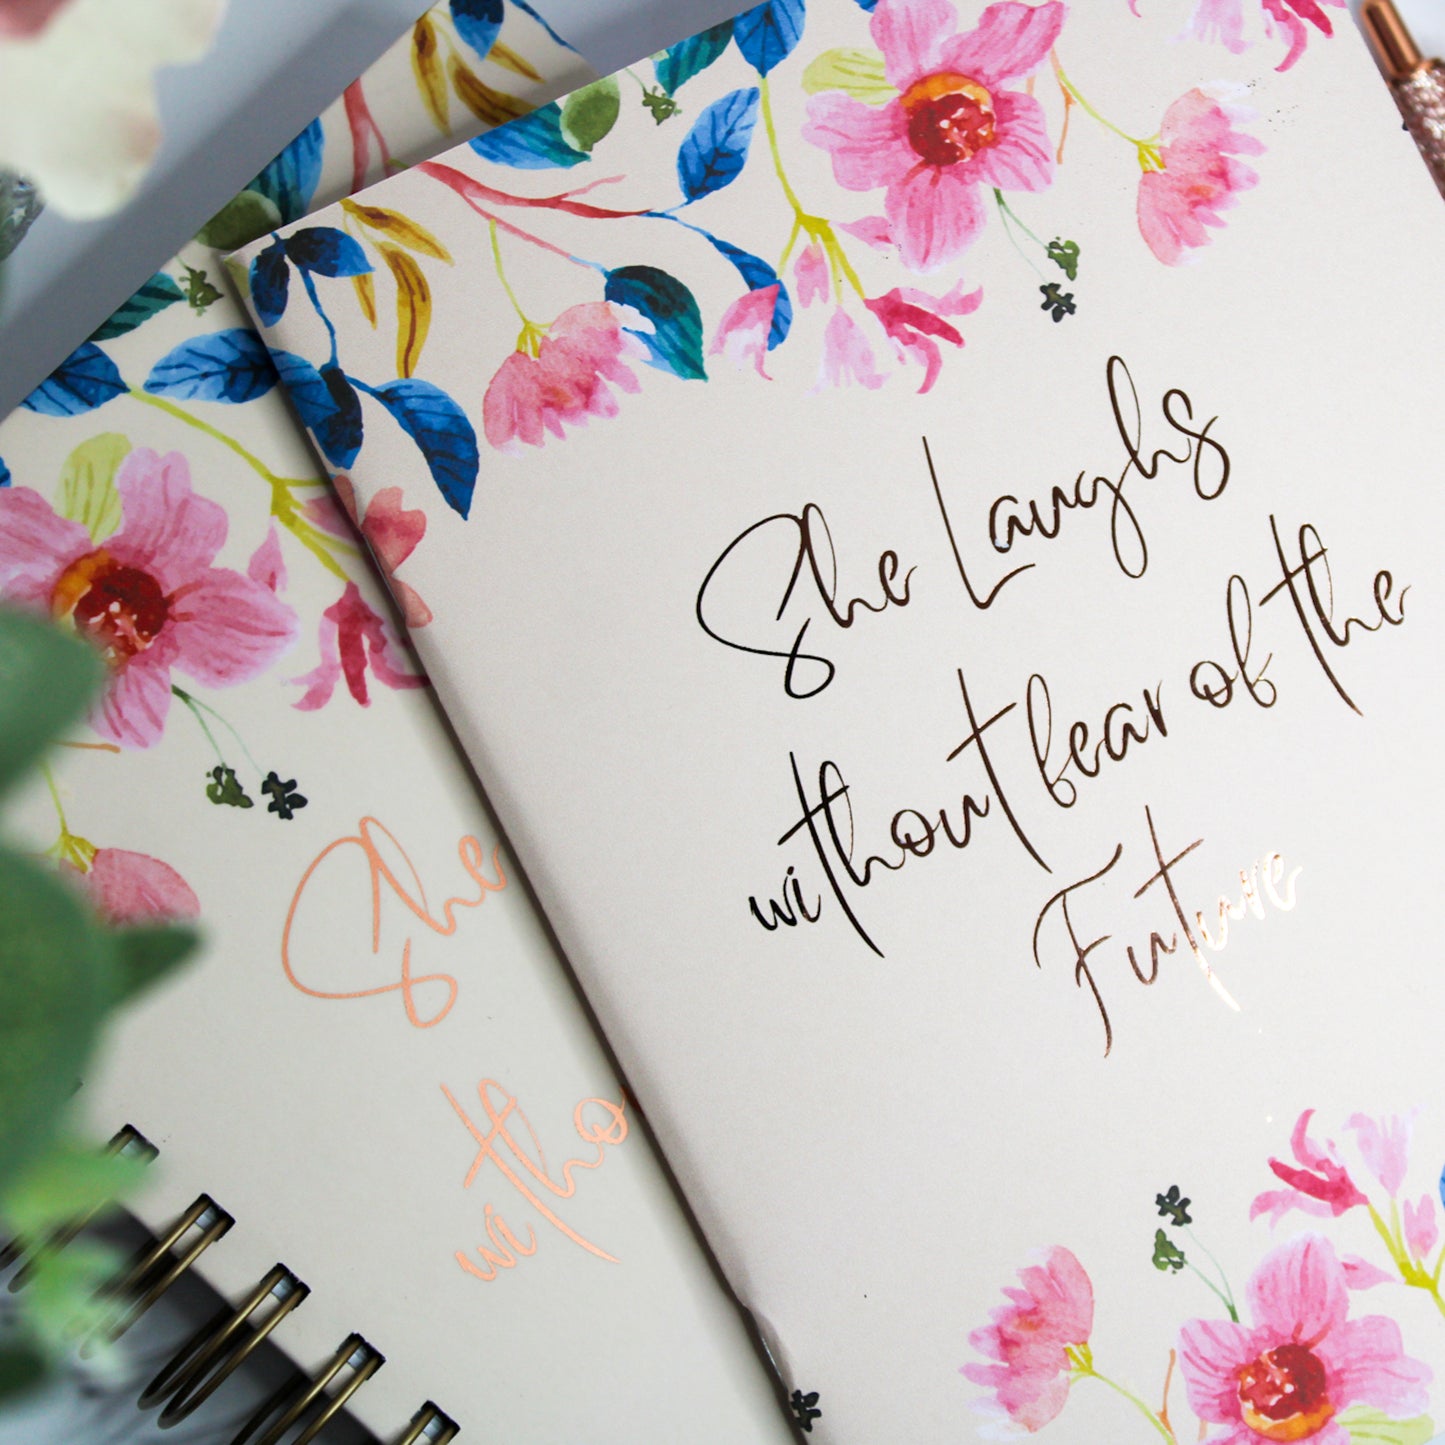 She Laughs
without fear of the
Future
She
witho